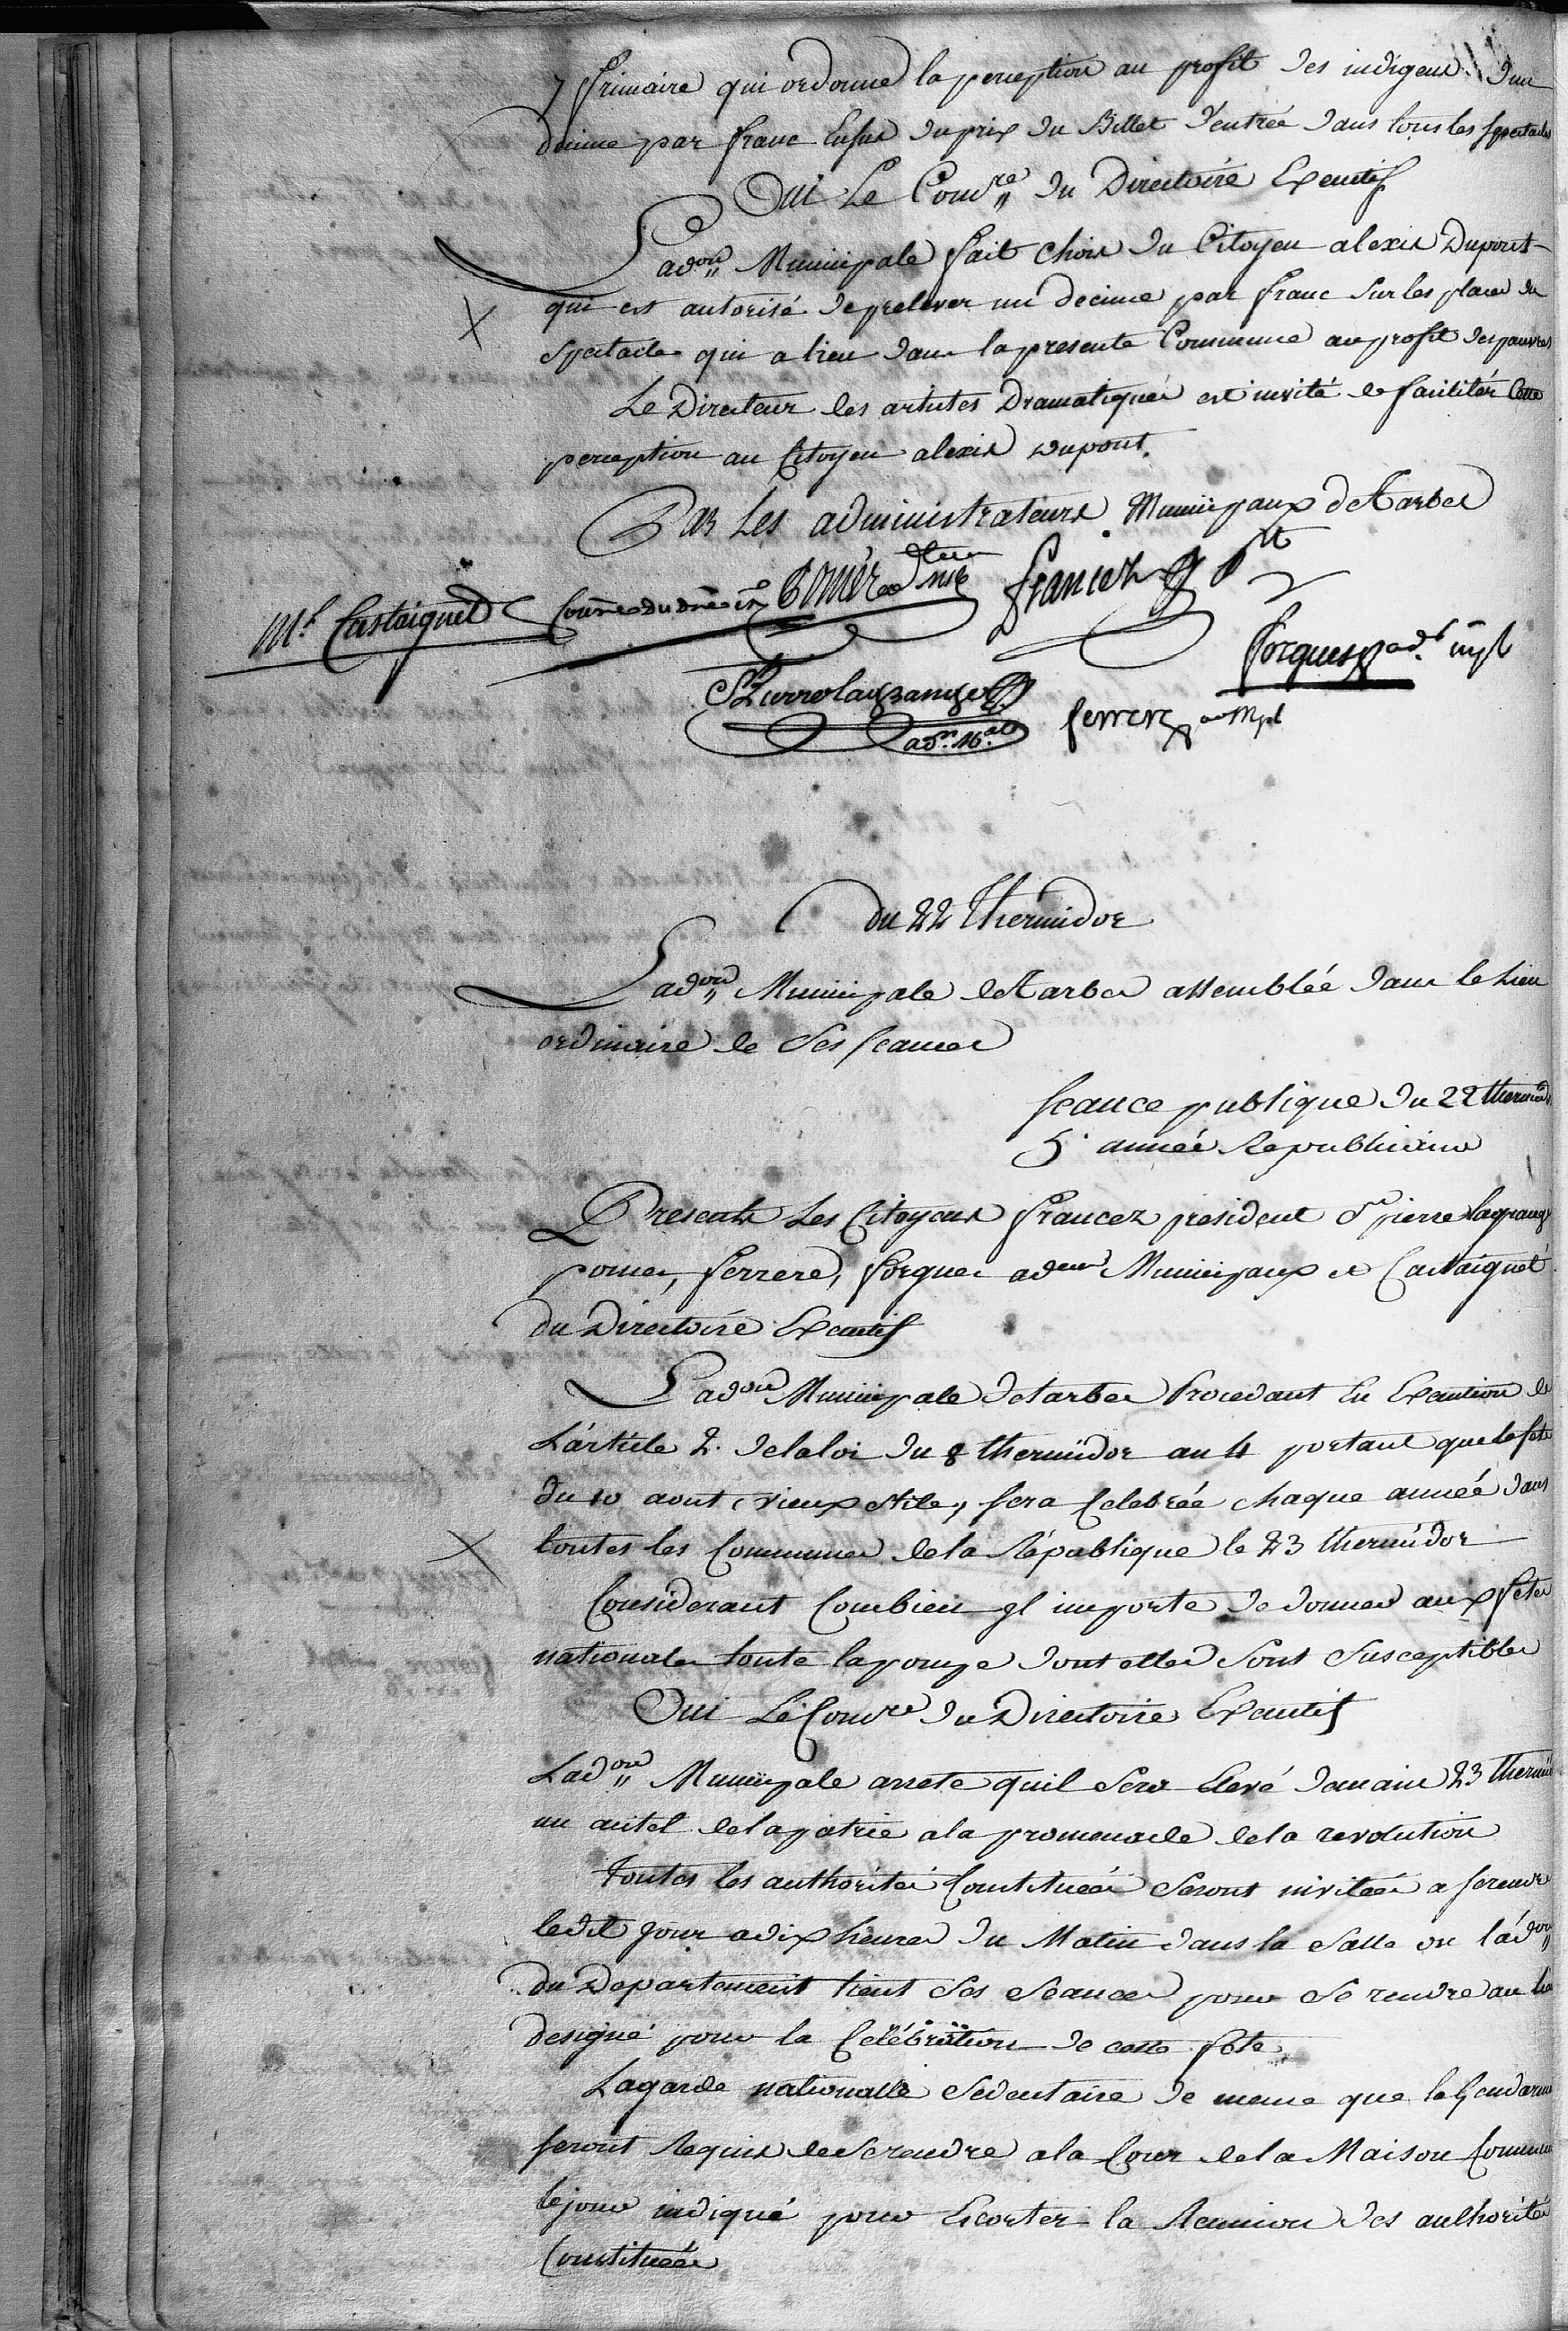 7 frimaire qui ordonne la perception au profit des indigens d'un
decime par franc Ensus du prix du Billet d'entrée dans tous les spectacles
Oui Le Comre du Directoire Executif
L'adon Municipale fait choix du Citoyen alexis Dupont
qui est autorisé de prelever un decime par franc Sur les places du
Spectacle qui a lieu dans la presente Commune au profit des pauvres
Le Directeur des artistes Dramatiques est invité de faciliter Cette
perception au Citoyen alexis Dupont.
Par Les administrateurs Municipaux de Tarbes
Mel Castaignet Comre du dre ex Pomez francez pt
Forgues adr mpl
St Pierre lagrange adr mal ferrere adr Mpl
du 22 Thermidor
L'adon Municipale de Tarbes assemblée dans le Lieu
ordinaire de Ses seances
seance publique du 22 thermidor
5e année Republicaine
Presents Les Citoyens francez president St pierre lagrange
pomes, ferrere, forgues adeurs Municipaux et Castaignet
du Directoire Executif
L'adon Municipale de tarbes Procedant En Execution de
L'article 2. de la loi du 8 thermidor an 4 portant que la fete
du 10 aout (vieux stile,) sera Celebrée chaque année dans
toutes les Communes de la République le 23 thermidor
Considerant Combien il importe de donner aux fetes
nationales toute la pompe dont elles Sont Susceptibles
Oui Le Comre du Directoire Executif
L'adon Municipale arrete quil Sera Elevé demain 23 thermidor
un autel de la patrie a la promenade de la revolution
toutes les authorités Constituées Seront invitées a se rendre
ledit jour a dix heures du Matin dans la Salle ou l'adon
du Departement tient Ses Seances pour Se rendre au lieu
designé pour la Célébration de cette fete
La garde nationalle Sedentaire de meme que la Gendarmerie
seront Requis de Se rendre a la Cour de la Maison Commune
le jour indiqué pour Escorter la Reunion des authorités
Constituées